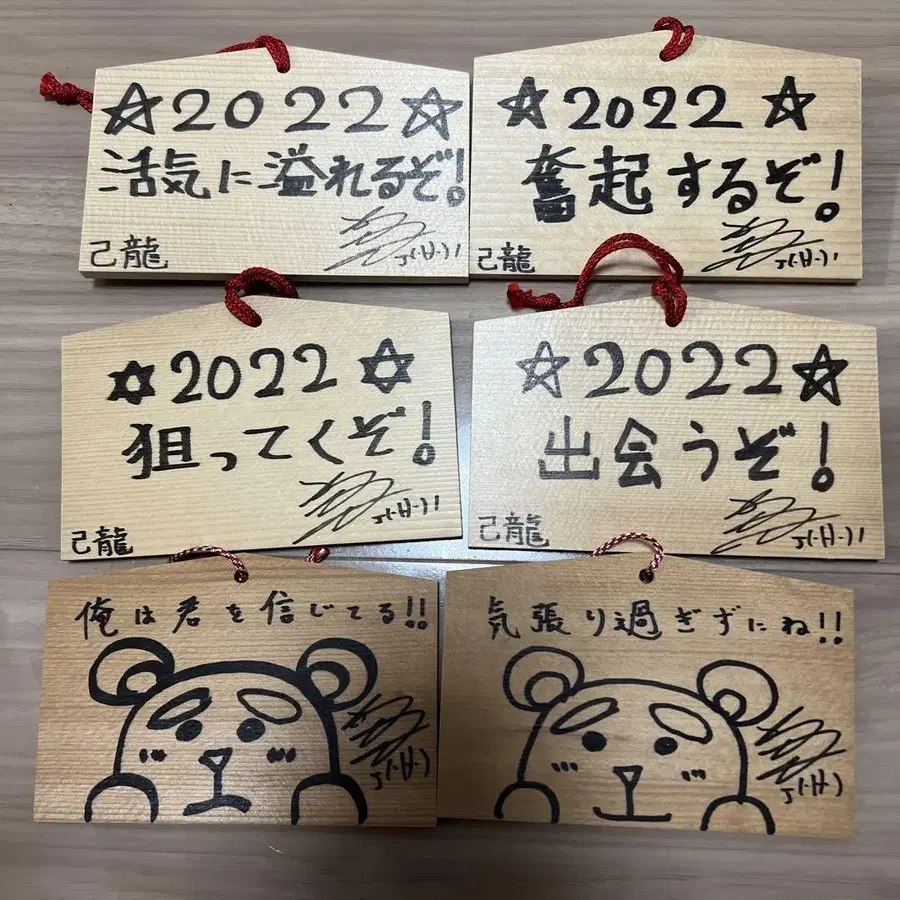 ☆2022☆
活気に溢れるぞ!
己龍
☆2022☆
奮起するぞ!
己龍
✡2022✡
狙ってくぞ!
己龍
☆2022☆
出会うぞ!
己龍
俺は君を信じてる!!
気張り過ぎずにね!!